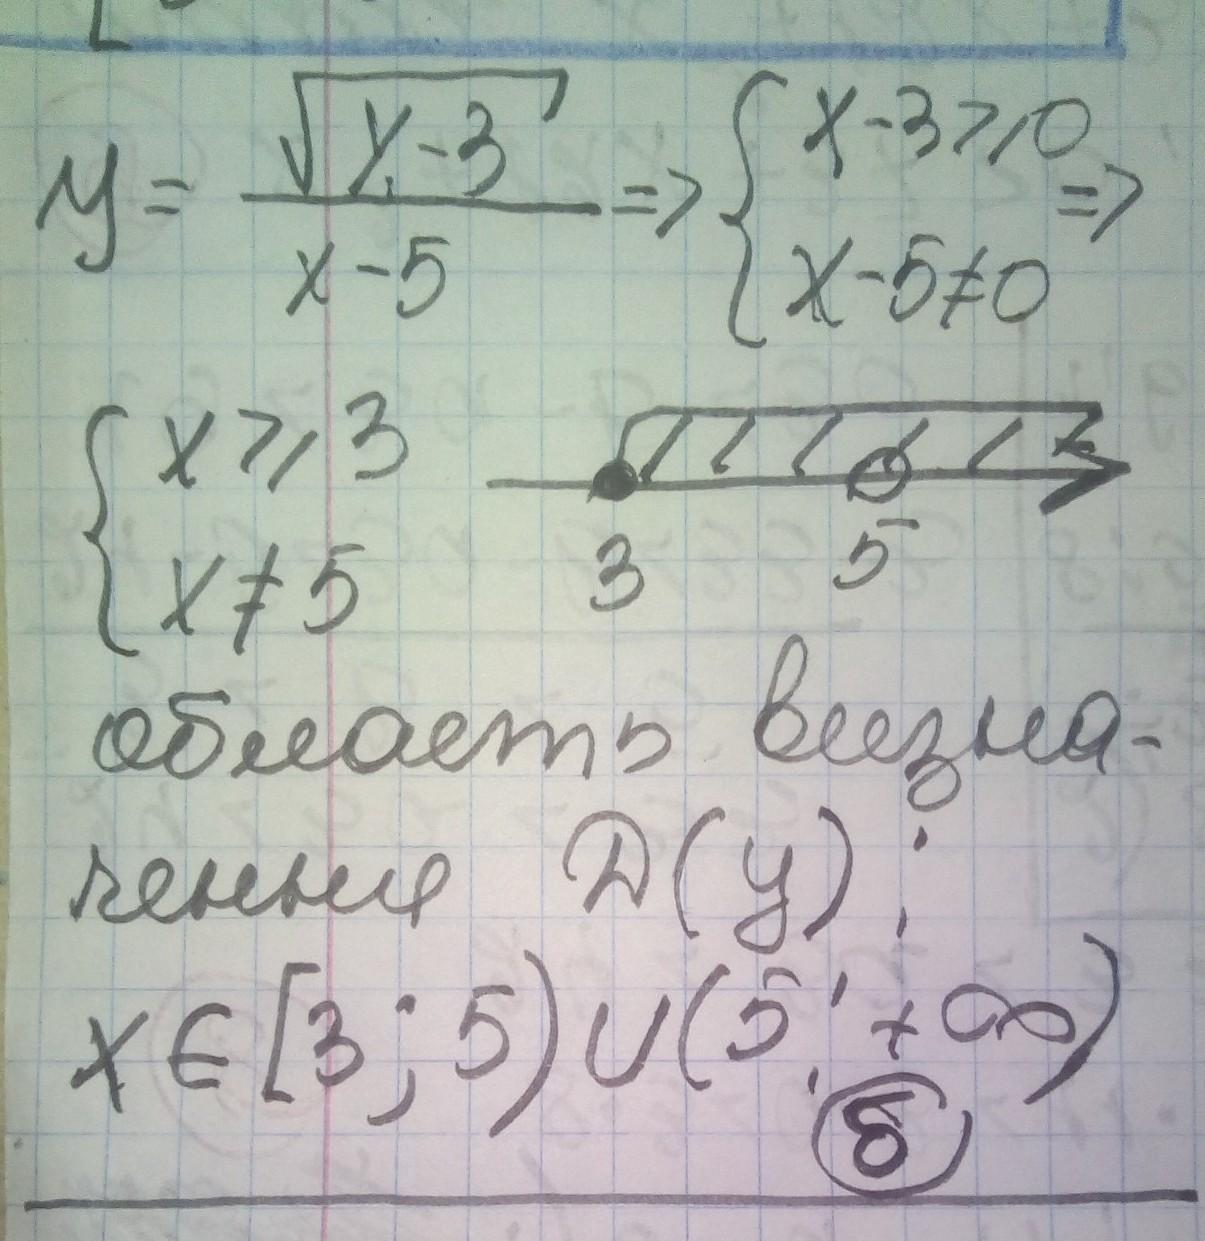 y = √(x-3) / (x-5) => { x-3 ⩾ 0
x-5 ≠ 0 =>
{ x ⩾ 3
x ≠ 5
3 5
область визна-
чення D(y):
x ∈ [3; 5) ∪ (5; +∞)
б